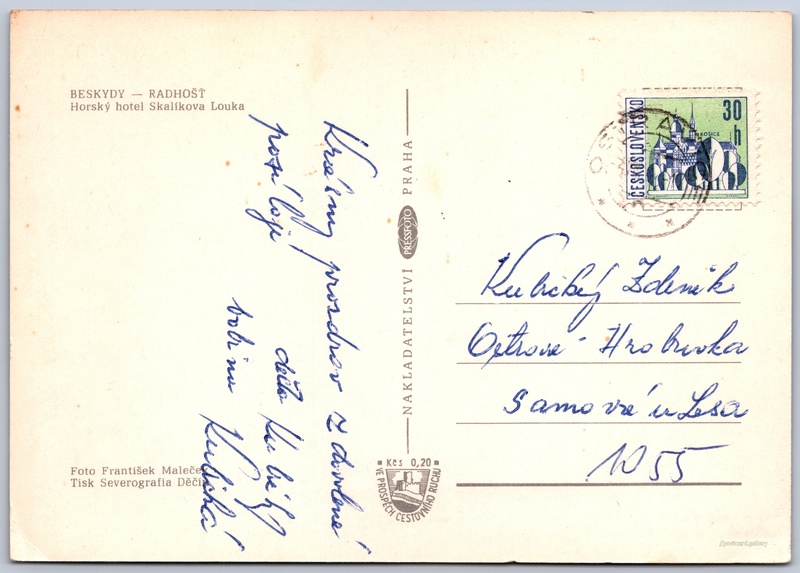 BESKYDY — RADHOŠŤ
Horský hotel Skalíkova Louka
Krásný pozdrav z dovolené
posílají
děda Kubický
babina Kubická
Foto František Maleček
Tisk Severografia Děčín
NAKLADATELSTVÍ PRESSFOTO PRAHA
Kčs 0,20
VE PROSPĚCH CESTOVNÍHO RUCHU
ČESKOSLOVENSKO
30 h
KOŠICE
OSTRAVA
Kubický Zdeněk
Ostrava - Hrabůvka
Samova u Lesa
1055